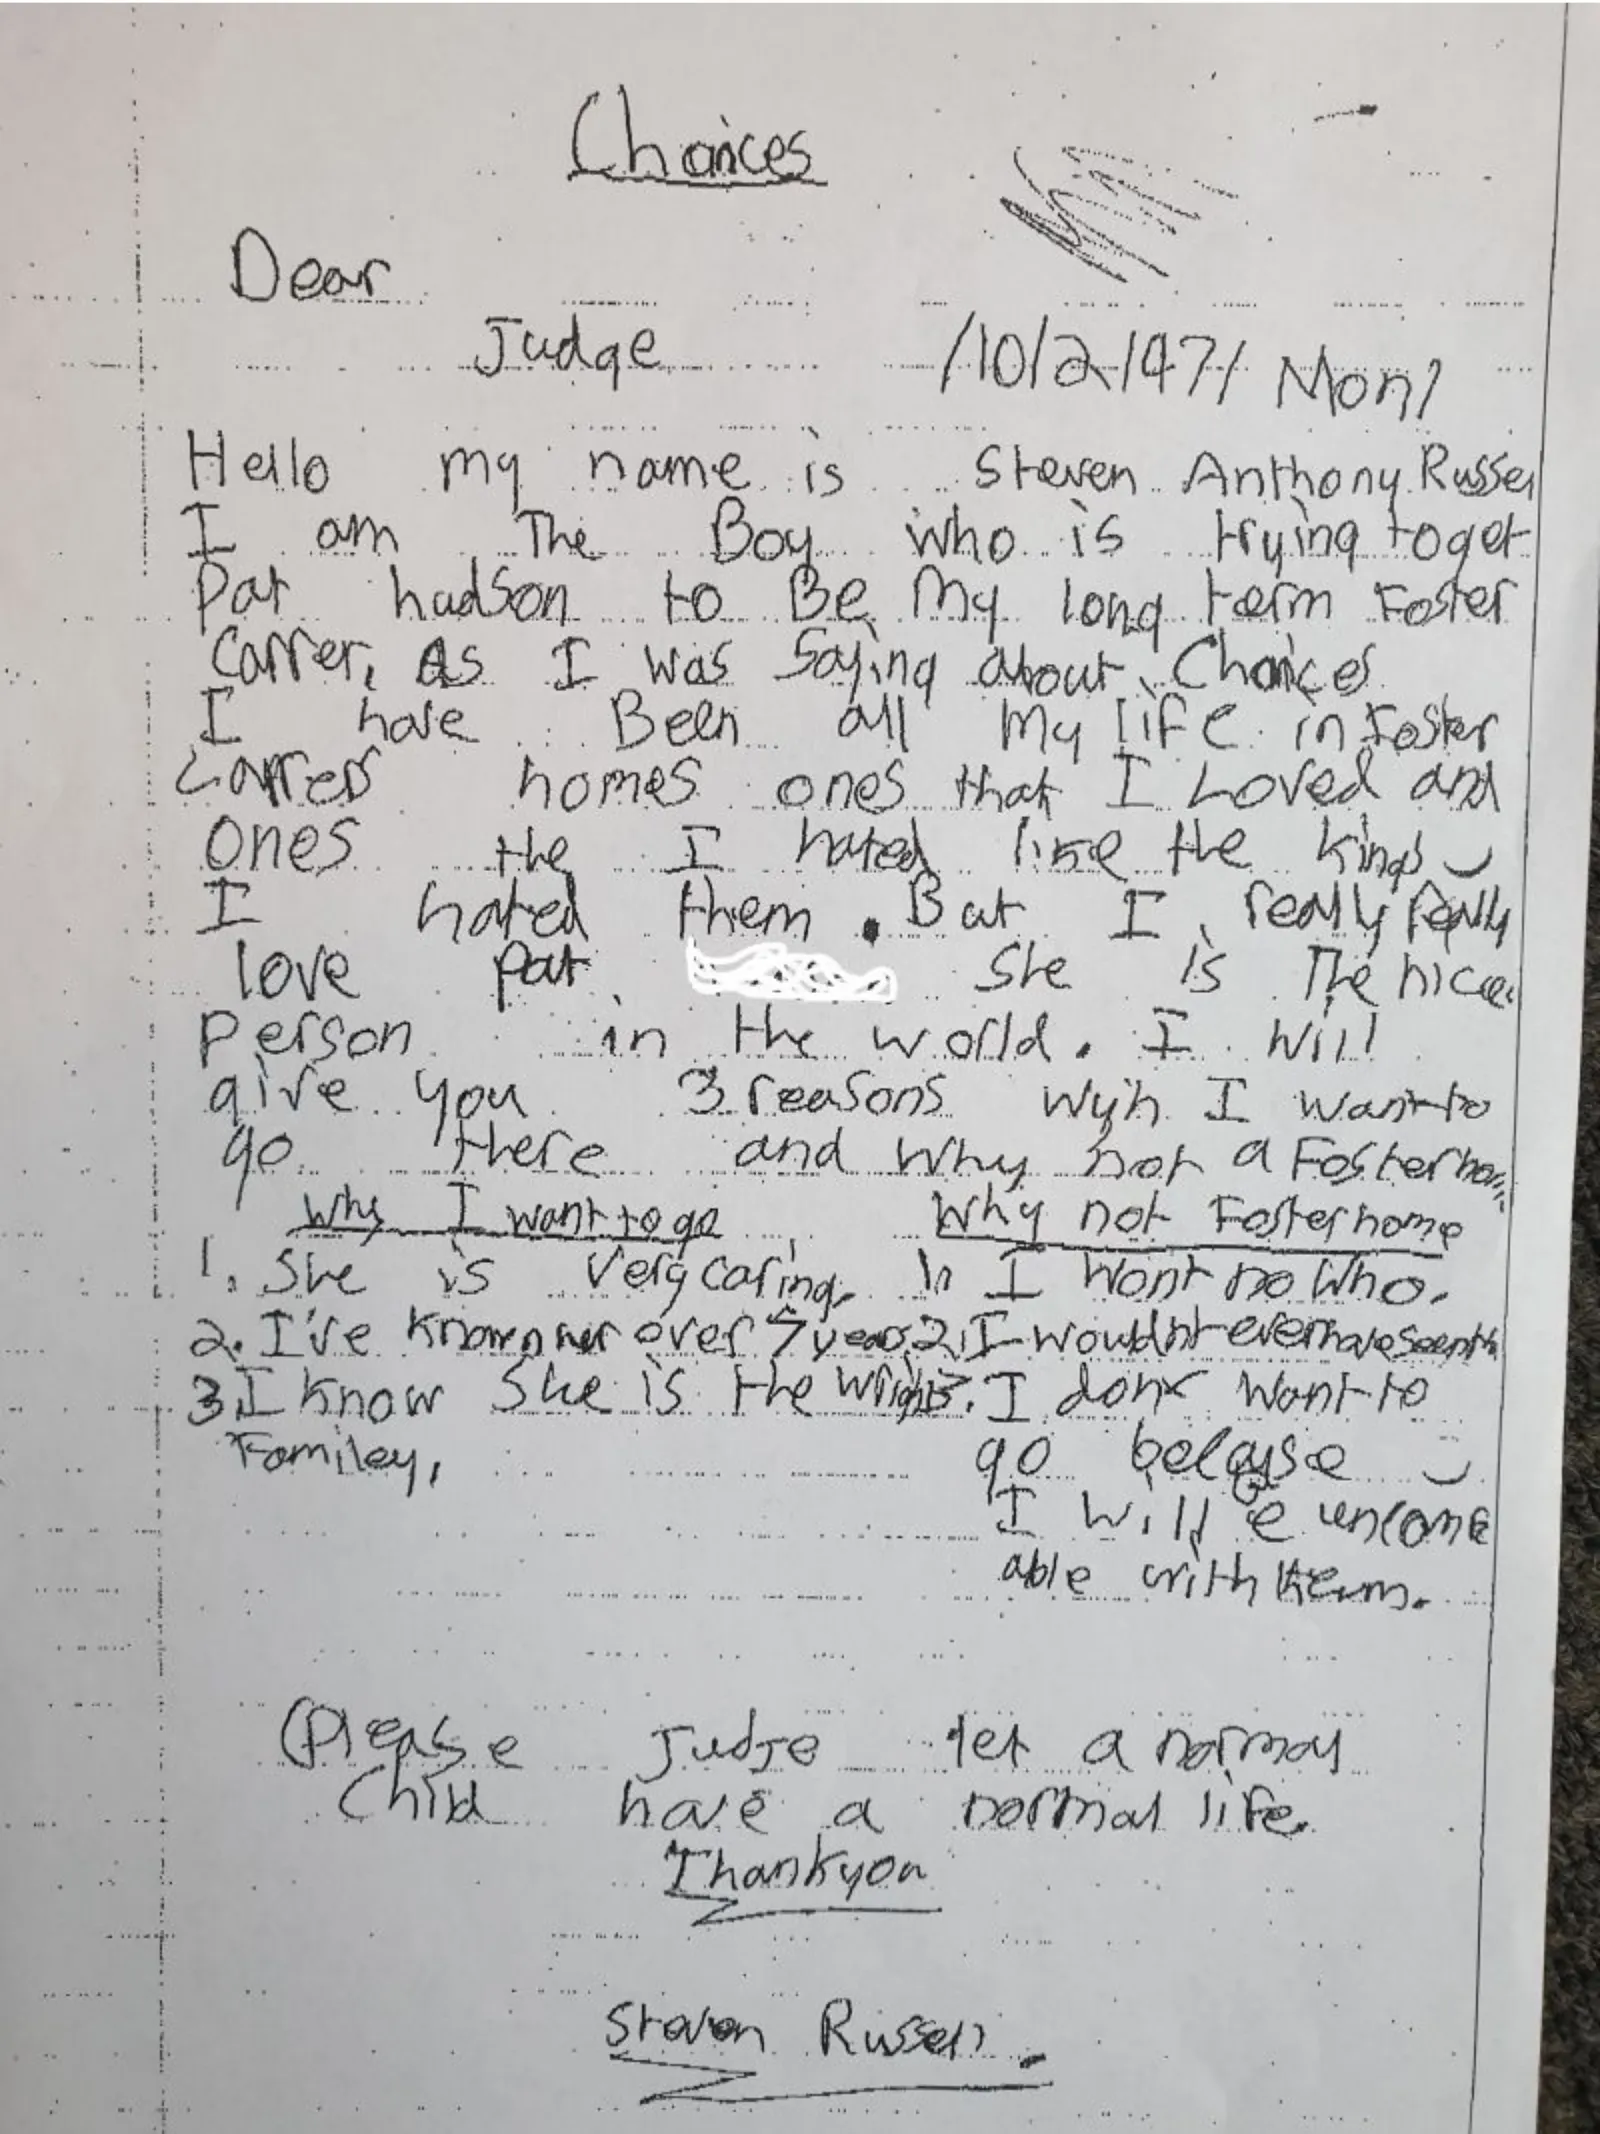 Chances
Dear
Judge /10/2/97/ Mon/
Hello my name is Steven Anthony Russel
I am The Boy who is trying to get
Pat hudson to Be My long term Foster
Carrer. As I was Saying about Chances
I have Been all My life in Foster
Carrers homes ones that I Loved and
ones the I hated like the kings
I hated them. But I really really
love pat She is The nice
Person in the world. I will
give you 3 reasons wyh I want to
go there and why not a Foster hom
Why I want to go Why not Foster home
1. She is Very caring. 1. I wont no Who.
2. I've known her over 7 years 2. I wouldnt ever have seen th
3. I know She is the Wright 3. I dont want to
Familey, go because
I will Be uncome
able with them.
(Please Judje let a normal
Child have a normal life.
Thankyou
Steven Russell.